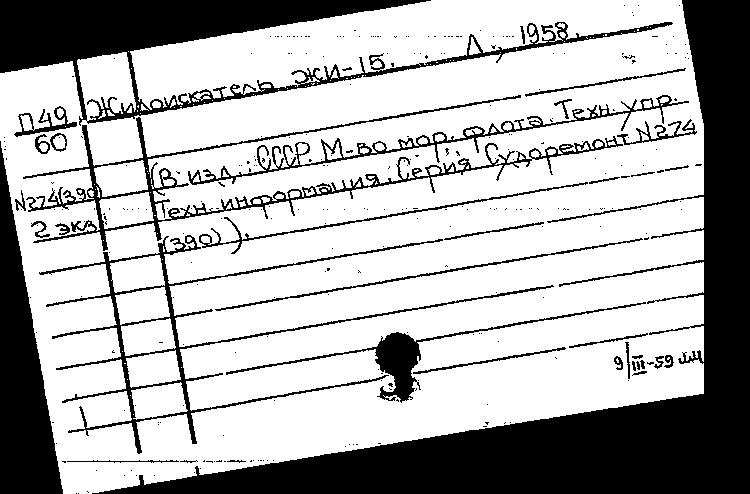 Жилоискатель ЖИ-15. Л., 1958.
П49
60
(В изд.: СССР. М-во мор. флота. Техн. упр.
Техн. информация. Серия Судоремонт N274
(390)).
N274(390)
2 экз.
9/III-59